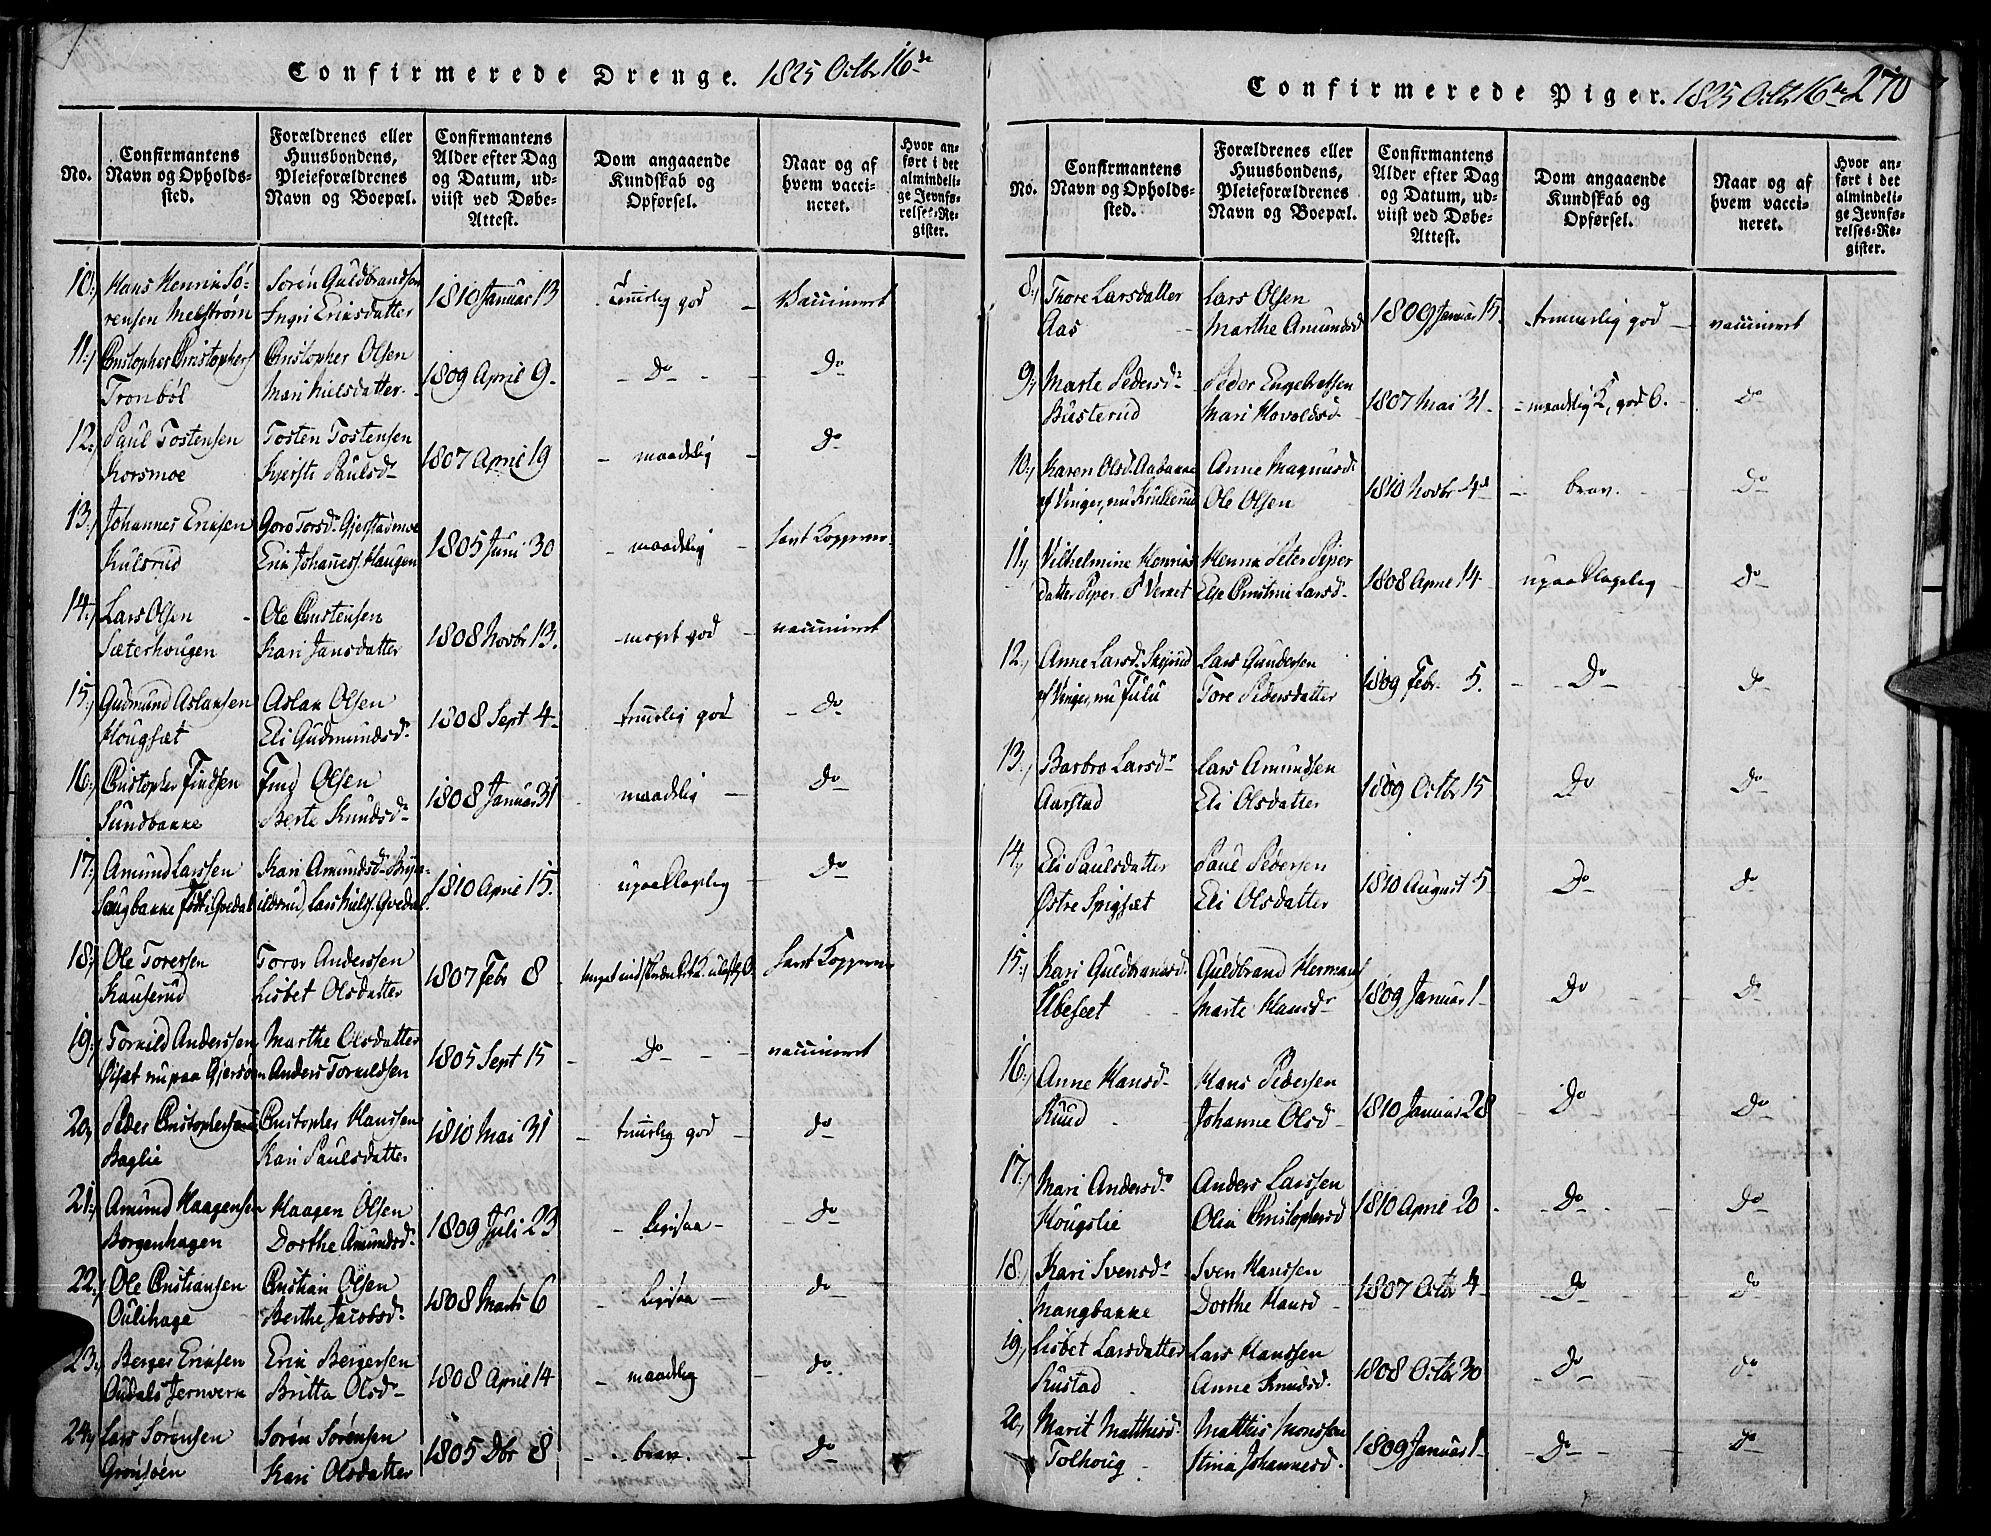 Confirmerede Drenge. 1825 Octbr 16de
No.
Confirmantens Navn og Opholdssted.
Forældrenes eller Huusbondens, Pleieforældrenes Navn og Boepæl.
Confirmantens Alder efter Dag og Datum, udviist ved Døbe-Attest.
Dom angaaende Kundskab og Opførsel.
Naar og af hvem vaccineret.
Hvor anført i det almindelige Jevnførelses-Register.
10. Hans Henrik Sörensen Melström
Sören Guldbrandsen
Ingri Eriksdatter
1810 Januar 13
god
Vaccineret
11. Christopher Christophers
Tronböl
Christopher Olsen
Mari Nielsdatter
1809 April 9
Do
Do
12. Paul Tostensen
Korsmoe
Tosten Tostensen
Kjersti Paulsd
1807 April 19
maadelig
Do
13. Johannes Eriksen
Kulsrud
Goro Torsd. Gjerstadmoe
Erik Johaness. Haugen
1805 Juni 30
maadelig
havt Kopperne
14. Lars Olsen
Sæterhougen
Ole Christensen
Kari Jansdatter
1808 Novbr 13.
meget god
vaccineret
15. Gudmund Aslaksen
Hougsæt
Aslak Olsen
Eli Gudmundsd.
1808 Sept 4
god
Do
16. Christopher Findsen
Sundbakke
Find Olsen
Berte Knudsd
1808 Januar 31
maadelig
Do
17. Amund Larssen
Kari Amundsd.
1810 April 15.
upaaklagelig
Do
18. Ole Torersen
Kauserud
Torer Anderssen
Lisbet Olsdatter
1807 Febr 8
havt Kopperne
19. Torkild Anderssen
Marthe Olsdatter
Anders Torkildsen
1805 Sept 15
Do
vaccineret
20. Peder Christophersen
Baglie
Christopher Hanssen
Kari Paulsdatter
1810 Mai 31
god
do
21. Amund Haagensen
Borgenhagen
Haagen Olsen
Dorthe Amundsd.
1809 Juli 23
Ligesaa
Do
22. Ole Christiansen
Oulihage
Christian Olsen
Berthe Jacobsd.
1808 Marts 6
Ligesaa
do
23. Berger Eriksen
Oudals Jernverk
Erik Bergersen
Britta Olsd
1808 April 14
maadelig
do
24. Lars Sörensen
Grönsöen
Sören Sörensen
Kari Olsdatter
1805 Dbr 8
brav.
Do
Confirmerede Piger. 1825 Octb 16de
270
No.
Confirmantens Navn og Opholdssted.
Forældrenes eller Huusbondens, Pleieforældrenes Navn og Boepæl.
Confirmantens Alder efter Dag og Datum, udviist ved Døbe-Attest.
Dom angaaende Kundskab og Opførsel.
Naar og af hvem vaccineret.
Hvor anført i det almindelige Jevnførelses-Register.
8. Thore Larsdatter
Aas
Lars Olsen
Marthe Amundsd
1809 Januar 15.
god
vaccineret
9. Marte Pedersdr
Busterud
Peder Engebretsen
Mari Hovoldsd
1807 Mai 31
maadelig K, god O.
Do
10. Karen Olsd. Aabakke
af Vinger, nu Krukkerud
Anne Magnusd
Ole Olsen
1810 Novbr 4
brav.
Do
11. Vilhelmine Henriks
datter Piper
Henrik Peter Piper
Else Christine Larsd
1808 April 14
upaaklagelig
Do
12. Anne Larsd. Skejrud
af Vinger, nu Fulu
Lars Gundersen
Tore Pedersdatter
1809 Febr 5.
Do
Do
13. Barbro Larsdr
Aarstad
Lars Amundsen
Eli Olsdatter
1809 Octbr 15
Do
Do
14. Eli Paulsdatter
Østre Spigsæt
Paul Pedersen
Eli Olsdatter
1810 August 5
Do
do
15. Kari Guldbrandsd.
Ubeseet
Guldbrand Hermans
Marte Hansdr
1809 Januar 1
Do
Do
16. Anne Hansd
Ruud
Hans Pedersen
Johanne Olsd
1810 Januar 28
Do
Do
17. Mari Andersd
Hougslie
Anders Larssen
Olia Christophersd
1810 April 20
Do
Do
18. Kari Svensdr
Mangbakke
Sven Hanssen
Dorthe Hansd
1807 Octbr 4
Do
Do
19. Lisbet Larsdatter
Rustad
Lars Hanssen
Anne Knudsd.
1808 Octbr 30
Do
do
20. Marit Matthisd
Tolhoug
Matthis Monssen
Stina Johannesd.
1809 Januar 1
Do
Do